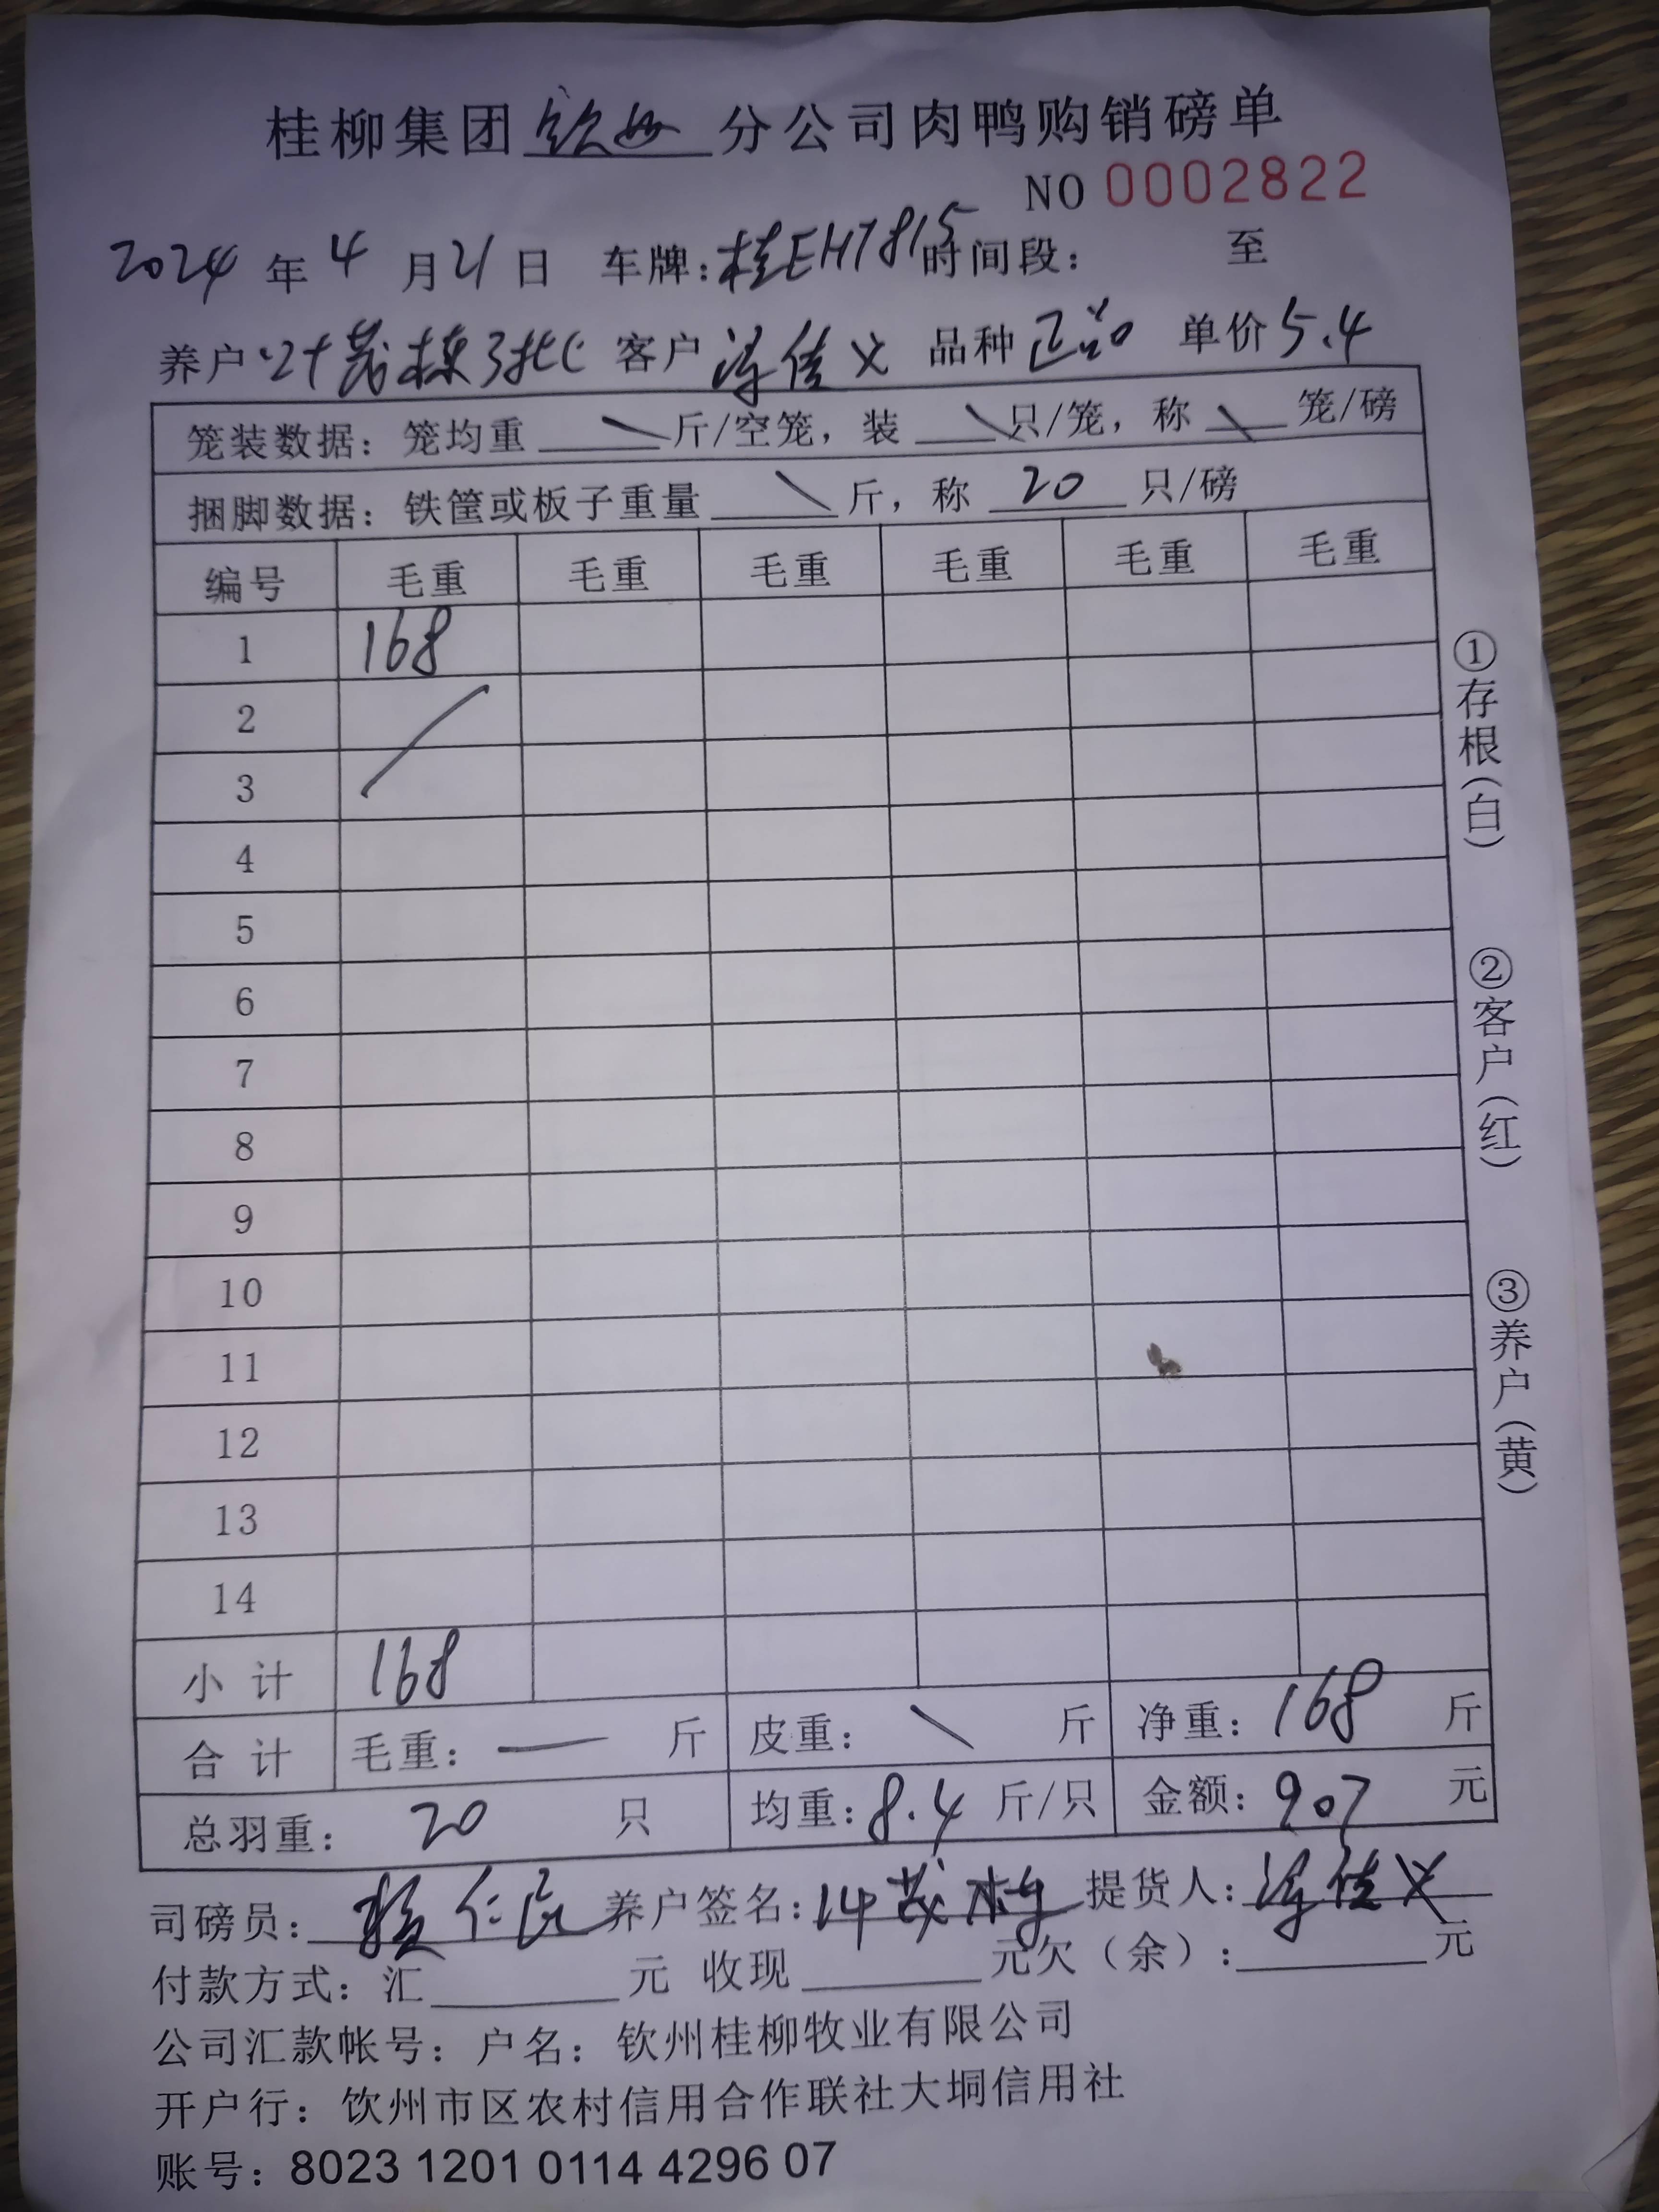 桂柳集团钦州分公司肉鸭购销磅单
NO 0002822
2024年4月21日 车牌:桂EH7815时间段: 至
养户 茂栋3批 客户 佳义 品种 正品 单价5.4
笼装数据: 笼均重 \ 斤/空笼, 装 \ 只/笼, 称 \ 笼/磅
捆脚数据: 铁筐或板子重量 \ 斤, 称 20 只/磅
编号 毛重 毛重 毛重 毛重 毛重 毛重
1 168
2 /
3
4
5
6
7
8
9
10
11
12
13
14
小计 168
合计 毛重: — 斤 皮重: \ 斤 净重: 168 斤
总羽重: 20 只 均重: 8.4 斤/只 金额: 907 元
司磅员: 仁良 养户签名: 茂栋 提货人: 佳义
付款方式: 汇 元 收现 元欠(余): 元
公司汇款帐号: 户名: 钦州桂柳牧业有限公司
开户行: 饮州市区农村信用合作联社大垌信用社
账号: 8023 1201 0114 4296 07
①存根(白)
②客户(红)
③养户(黄)